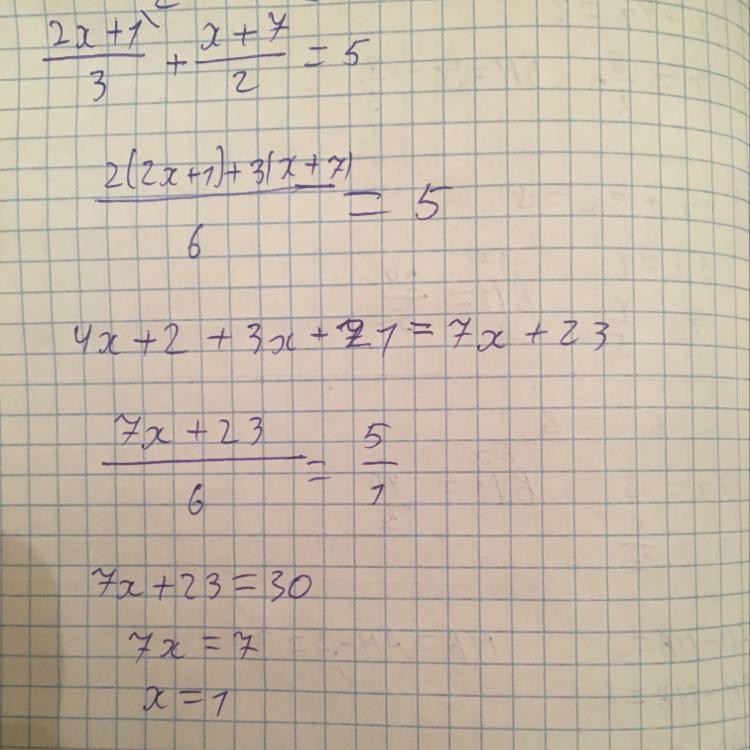 (2x+1)/3 + (x+7)/2 = 5
(2(2x+1)+3(x+7))/6 = 5
4x+2+3x+21=7x+23
(7x+23)/6 = 5/1
7x+23=30
7x=7
x=1